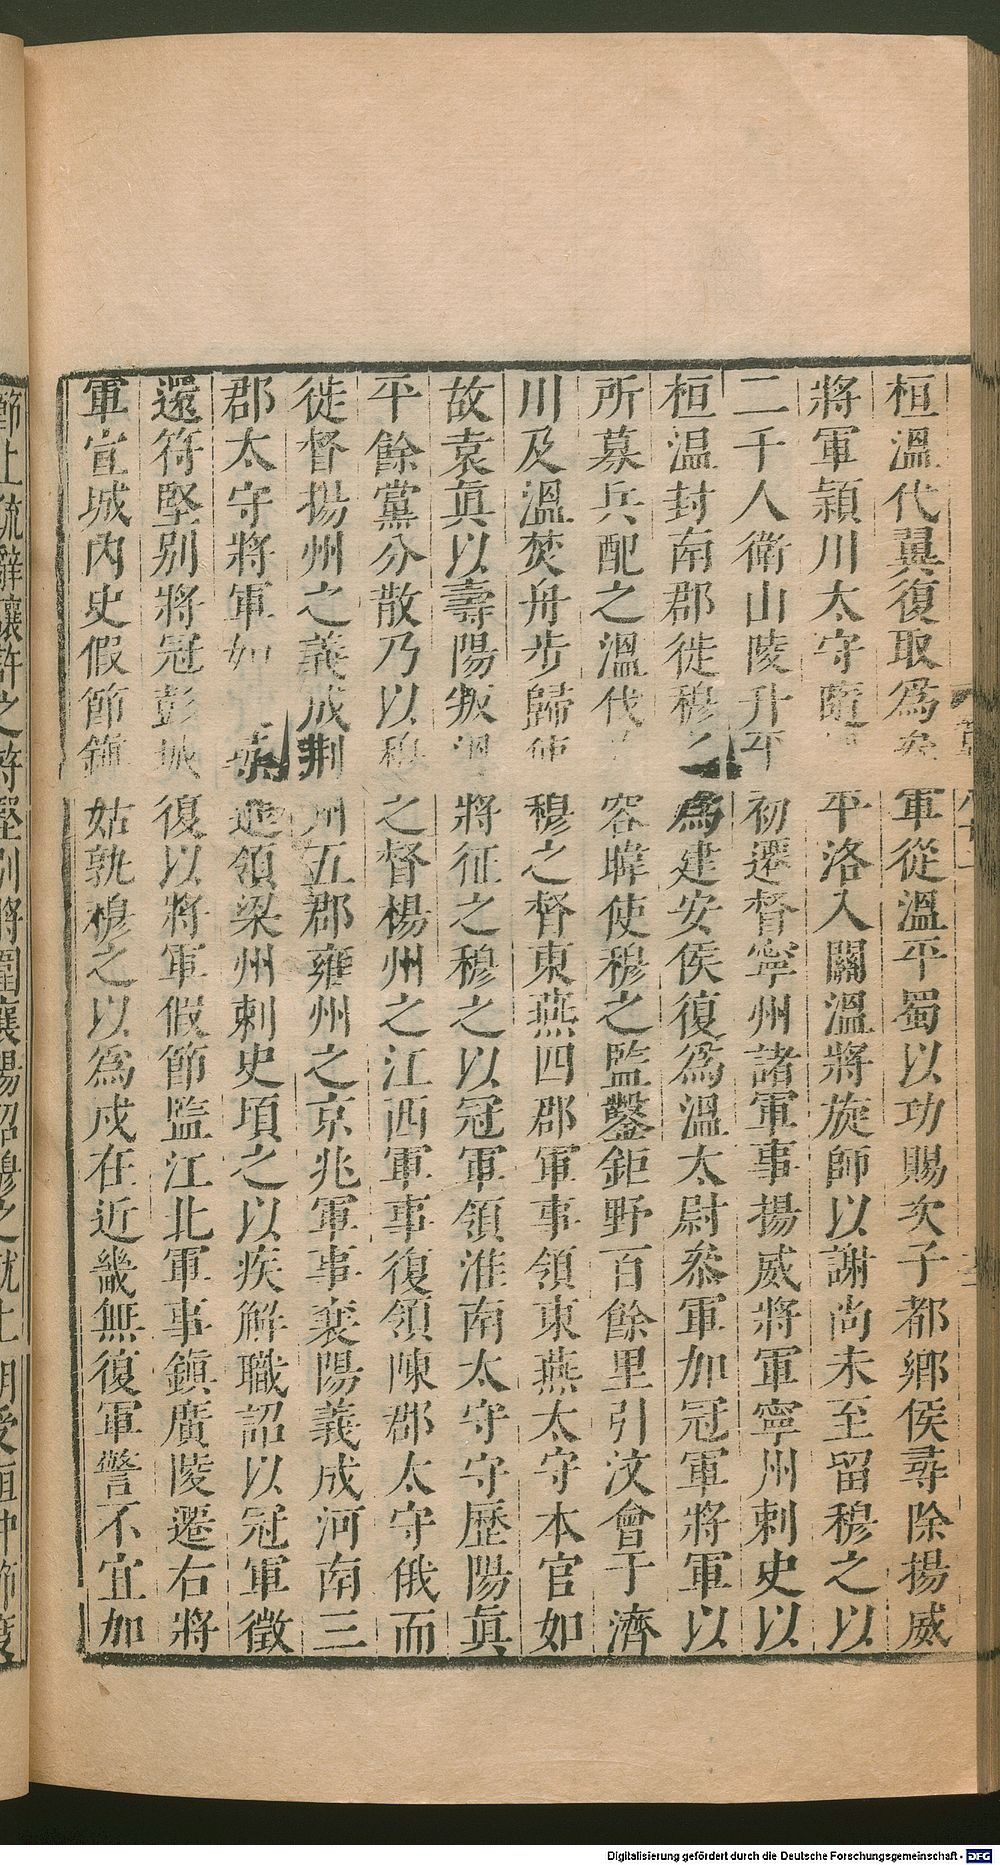 桓溫代翼復取爲參軍從溫平蜀以功賜次子都鄉侯尋除揚威
將軍潁川太守隨平洛入關溫將旋師以謝尚未至留穆之以
二千人衛山陵升平初遷督寧州諸軍事揚威將軍寧州刺史以
桓溫封南郡徙穆之爲建安侯復爲溫太尉叅軍加冠軍將軍以
所募兵配之溫伐容暐使穆之監鑿鉅野百餘里引汶會于濟
川及溫焚舟步歸使穆之督東燕四郡軍事領東燕太守本官如
故袁眞以壽陽叛將征之穆之以冠軍領淮南太守守歷陽眞
平餘黨分散乃以穆之督楊州之江西軍事復領陳郡太守俄而
徙督揚州之義成荆州五郡雍州之京兆軍事襄陽義成河南三
郡太守將軍如領梁州刺史頃之以疾解職詔以冠軍徵
還符堅別將冠彭城復以將軍假節監江北軍事鎭廣陵遷右將
軍宣城內史假節鎭姑孰穆之以爲戍在近畿無復軍警不宜加
節上疏辭讓許之符堅別將圍襄陽詔穆之就上明受桓沖節度